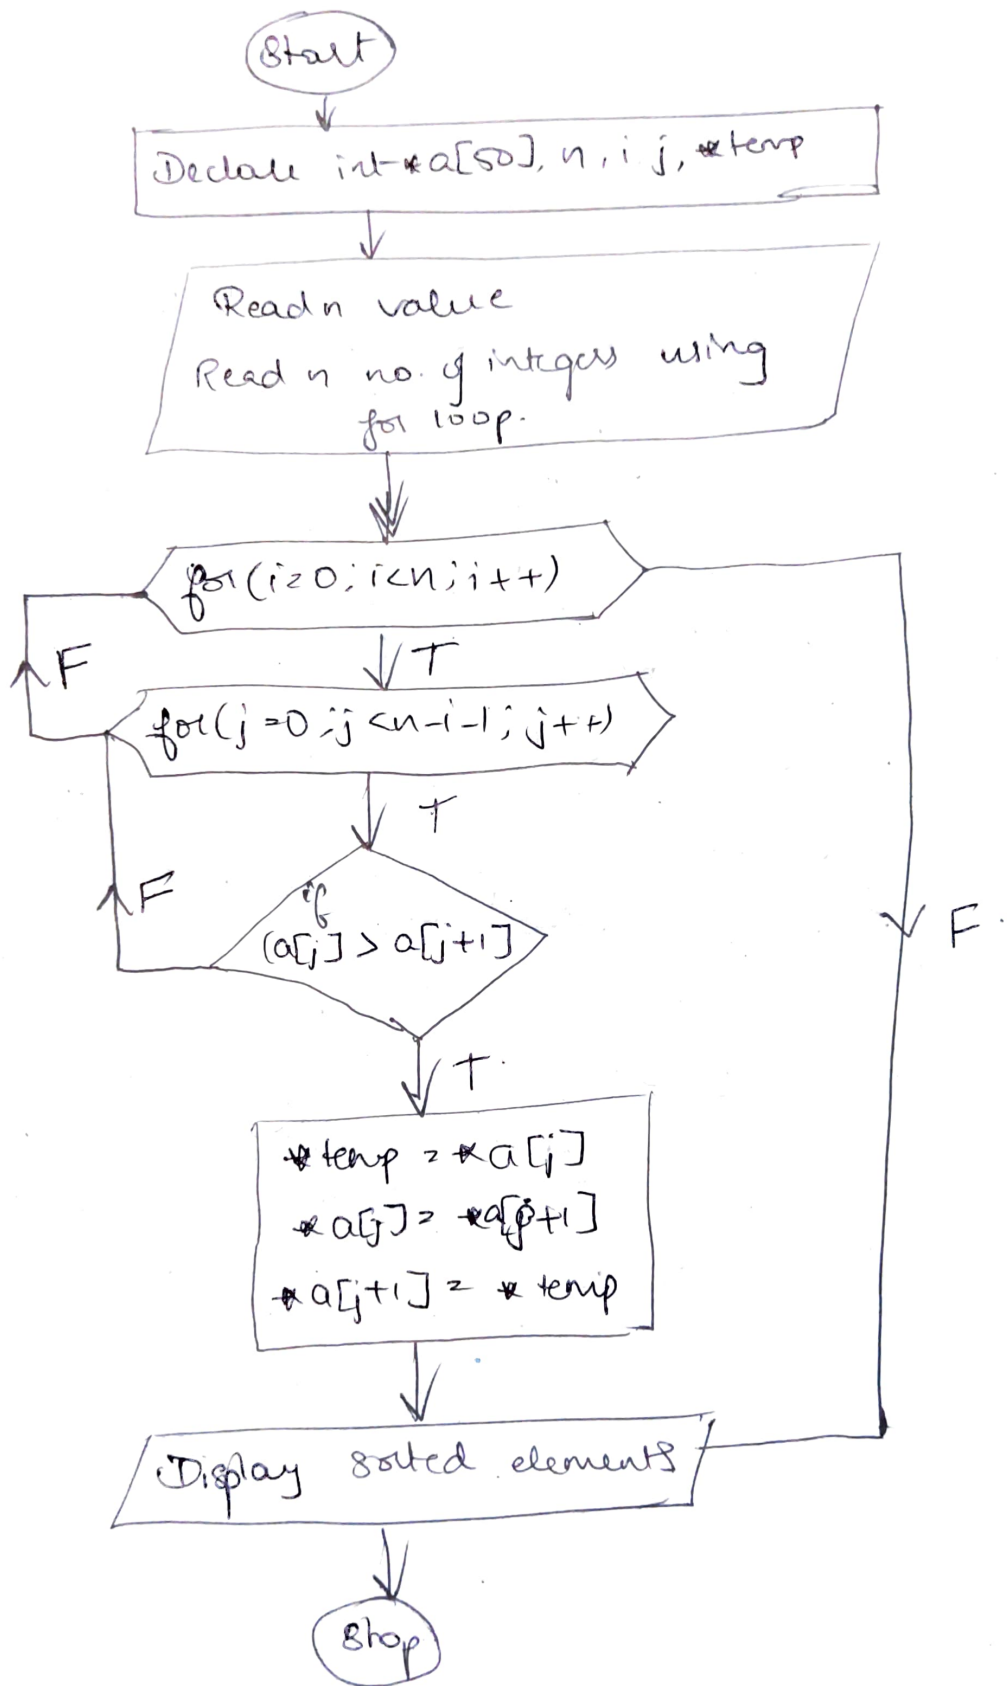 Start
Declare int *a[50], n, i j, *temp
Read n value
Read n no. of integers using
for loop.
for(i=0; i<n; i++)
F
T
for(j=0; j<n-i-1; j++)
T
F
if
(a[j] > a[j+1]
F.
T.
*temp = *a[j]
*a[j] = *a[j+1]
*a[j+1] = *temp
Display sorted elements
Stop